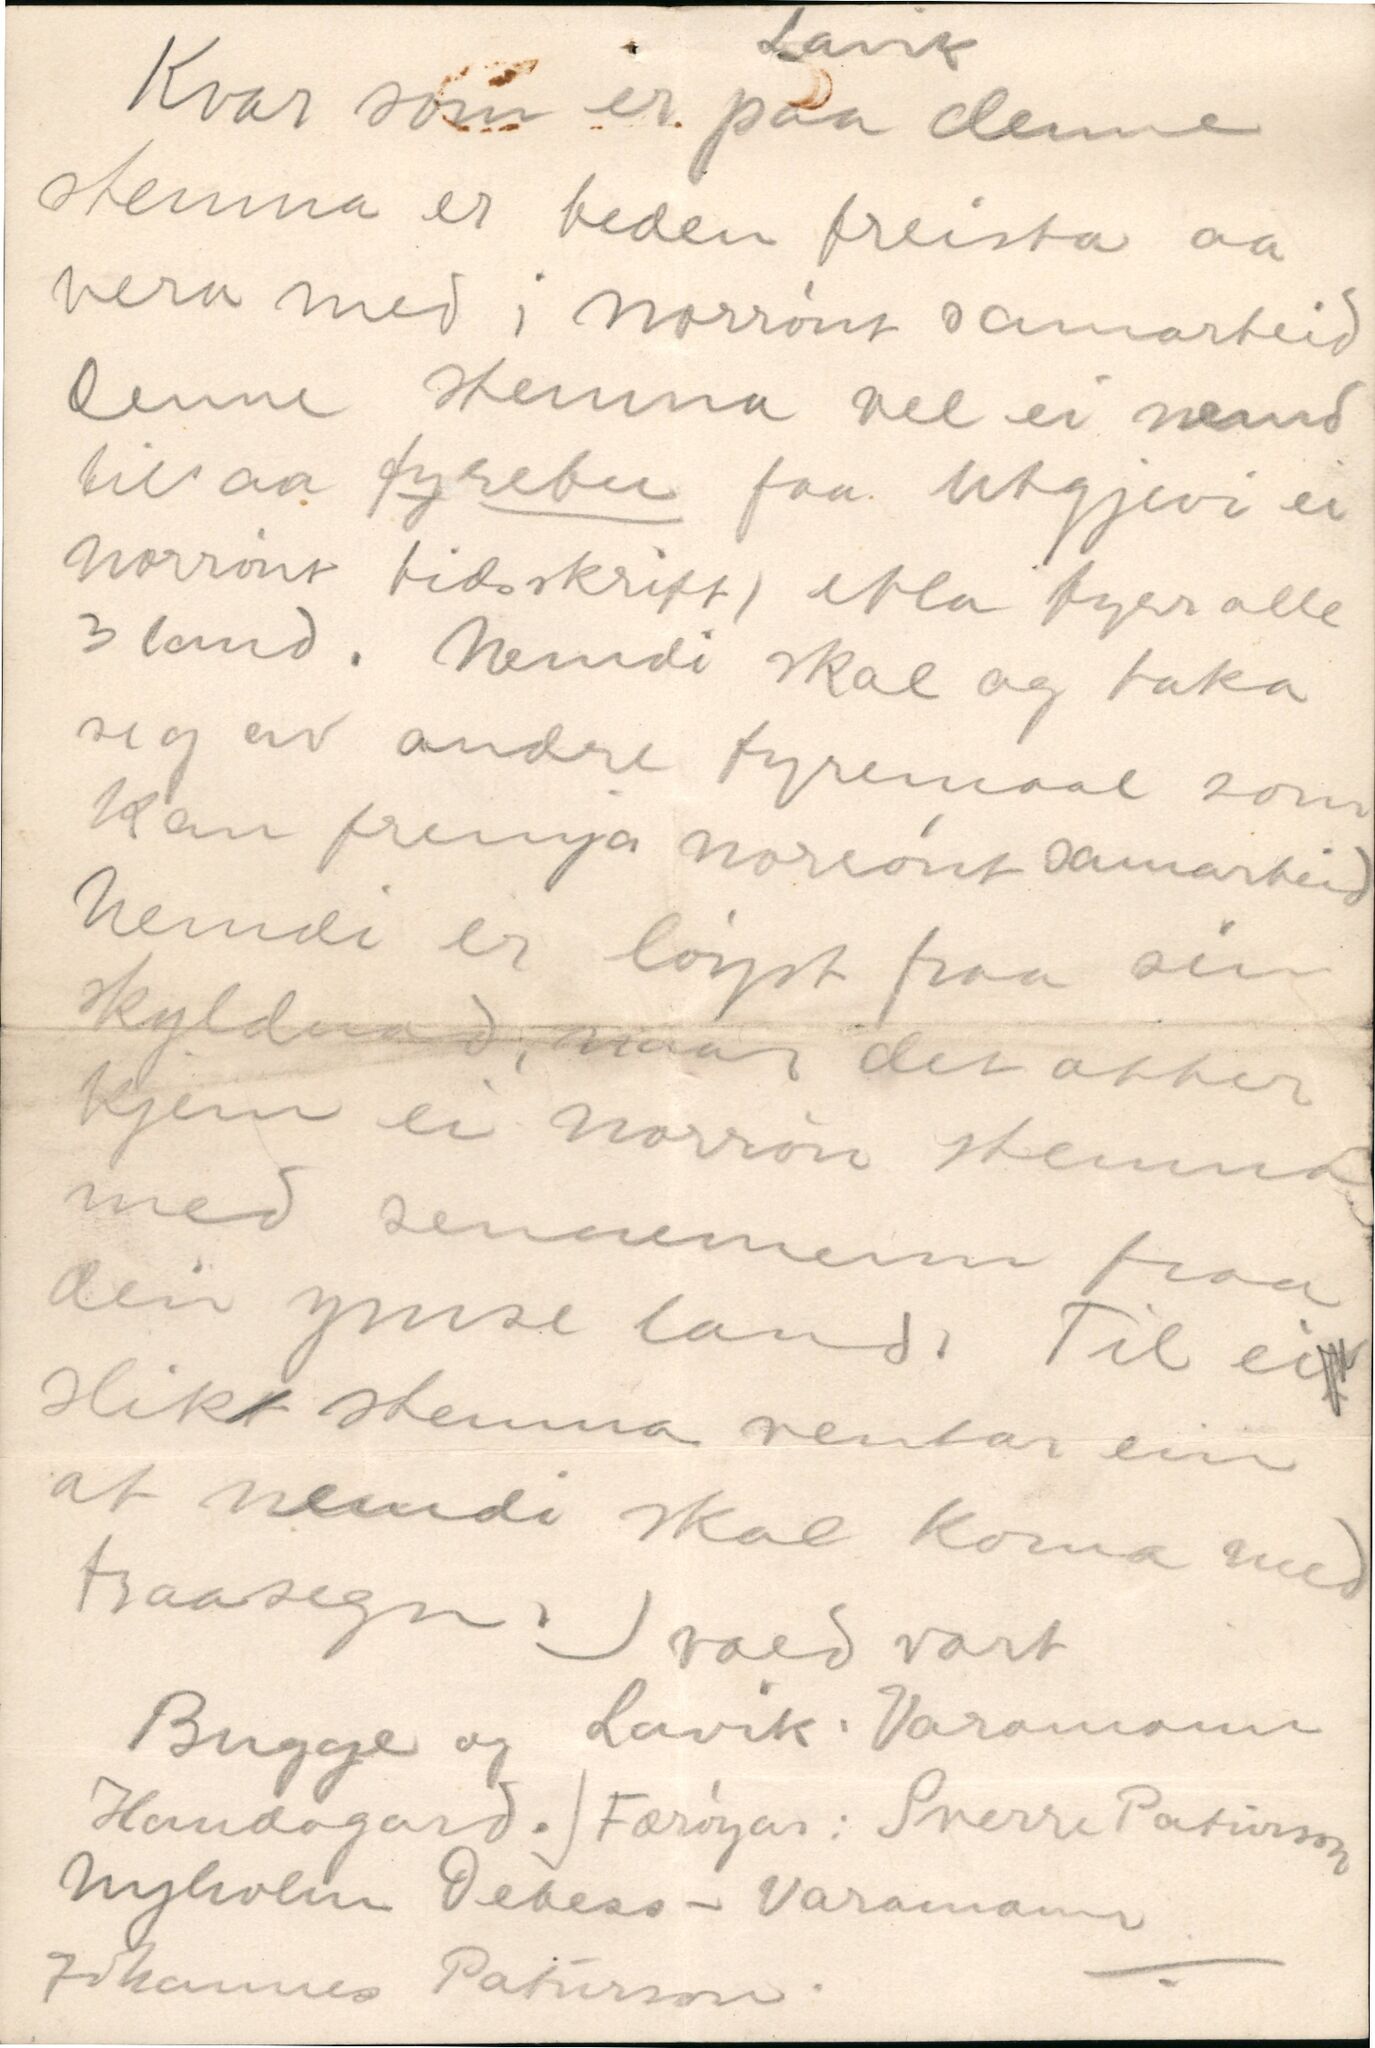 Lavik
Kvar som er paa denne
stemna er beden freista aa
vera med i norrónt samarbeid
Denne stemna vel ei nemd
til aa fyrebu faa Utgjevi ei
norrónt tidsskrift, etla fyrr alle
3 land. Nemdi skal og taka
seg av andre fyremaal som
kan fremja norrónt samarbeid
Nemdi er lóyst fraa sin
skyldnad, naar det atter
kjem ei norrón stemna
med sennemenn fraa
dei ymse land. Til ei
slik stemna ventar ein
at nemdi skal koma med
fraasegn.) vald vart
Bugge og Lavik. Varamann
Handagard.) Færóyar: Sverre Patursson
Nyholm Debess - Varamann
Jóhannes Patursson.